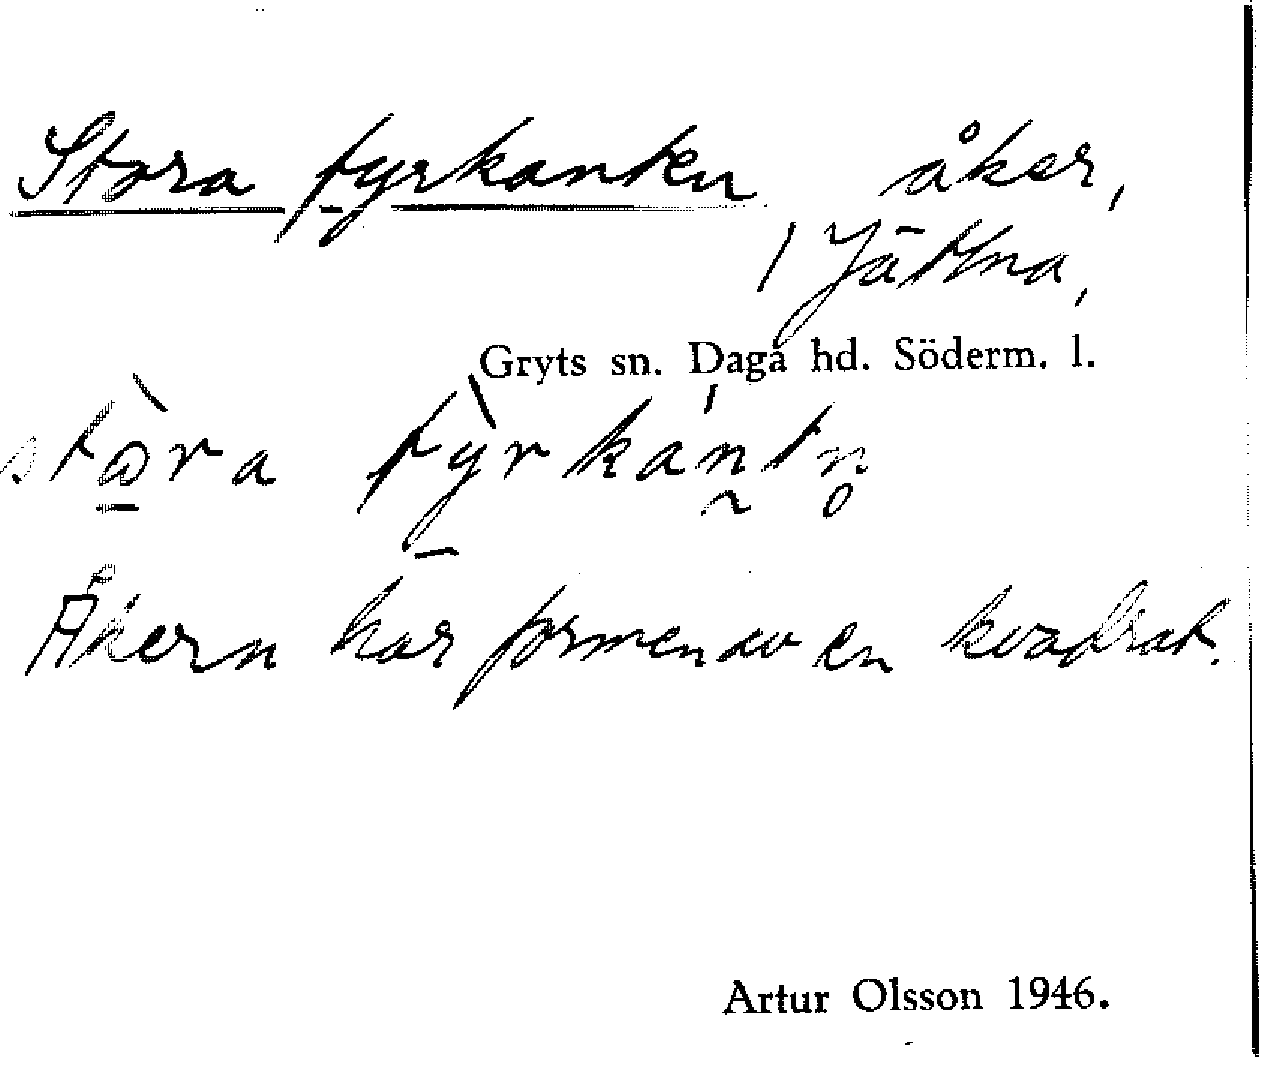 Stora fyrkanten åker,
1 Jättna,
Gryts sn. Daga hd. Söderm. l.
stòra fỳrkántn̥
Åkern har formen av en kvadrat.
Artur Olsson 1946.